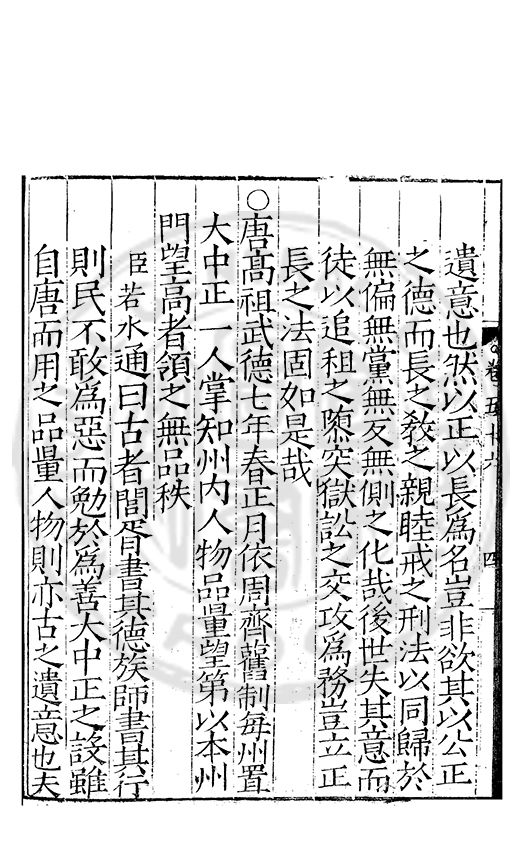 遺意也然以正以長爲名豈非欲其以公正
之德而長之敎之親睦戒之刑法以同歸於
無偏無黨無反無側之化哉後世失其意而
徒以追租之隳突獄訟之交攻爲務豈立正
長之法固如是哉
○唐高祖武德七年春正月依周齊舊制每州置
大中正一人掌知州内人物品量望第以本州
門望高者領之無品秩
臣若水通曰古者閭胥書其德族師書其行
則民不敢爲惡而勉於爲善大中正之設雖
自唐而用之品量人物則亦古之遺意也夫
卷五十六
四